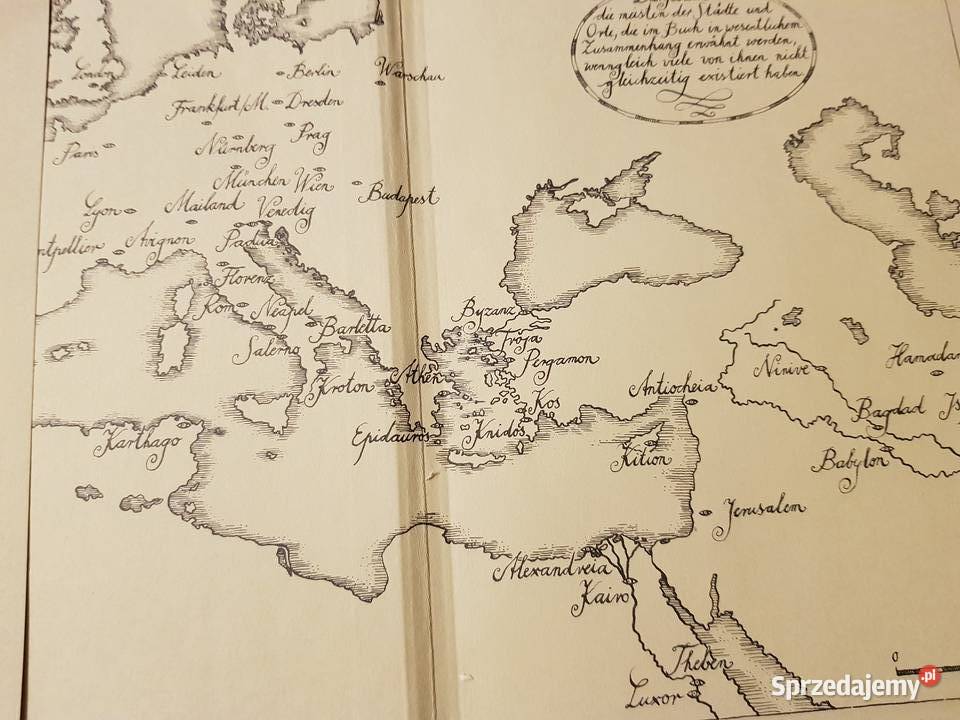 die meisten der Städte und
Orte, die im Buch in wesentlichem
Zusammenhang erwähnt werden,
wenngleich viele von ihnen nicht
gleichzeitig existiert haben
London
Leiden
Berlin
Warschau
Frankfurt/M.
Dresden
Paris
Nürnberg
Prag
München
Wien
Budapest
Lyon
Mailand
Venedig
ntpellier
Avignon
Padua
Florenz
Rom
Neapel
Barletta
Salerno
Kroton
Athen
Byzanz
Troja
Pergamon
Kos
Knidos
Epidauros
Karthago
Antiocheia
Kition
Ninive
Hamadan
Bagdad
Is
Babylon
Jerusalem
Alexandreia
Kairo
Theben
Luxor
0
Sprzedajemy.pl